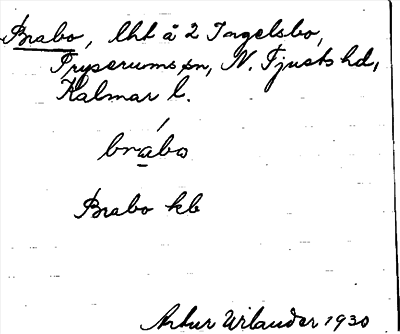 Brabo, lht å 2 Ingelsbo,
Tryserums sn, N. Tjusts hd,
Kalmar l.
bràbω
Brabo kb
Artur Wilander 1930